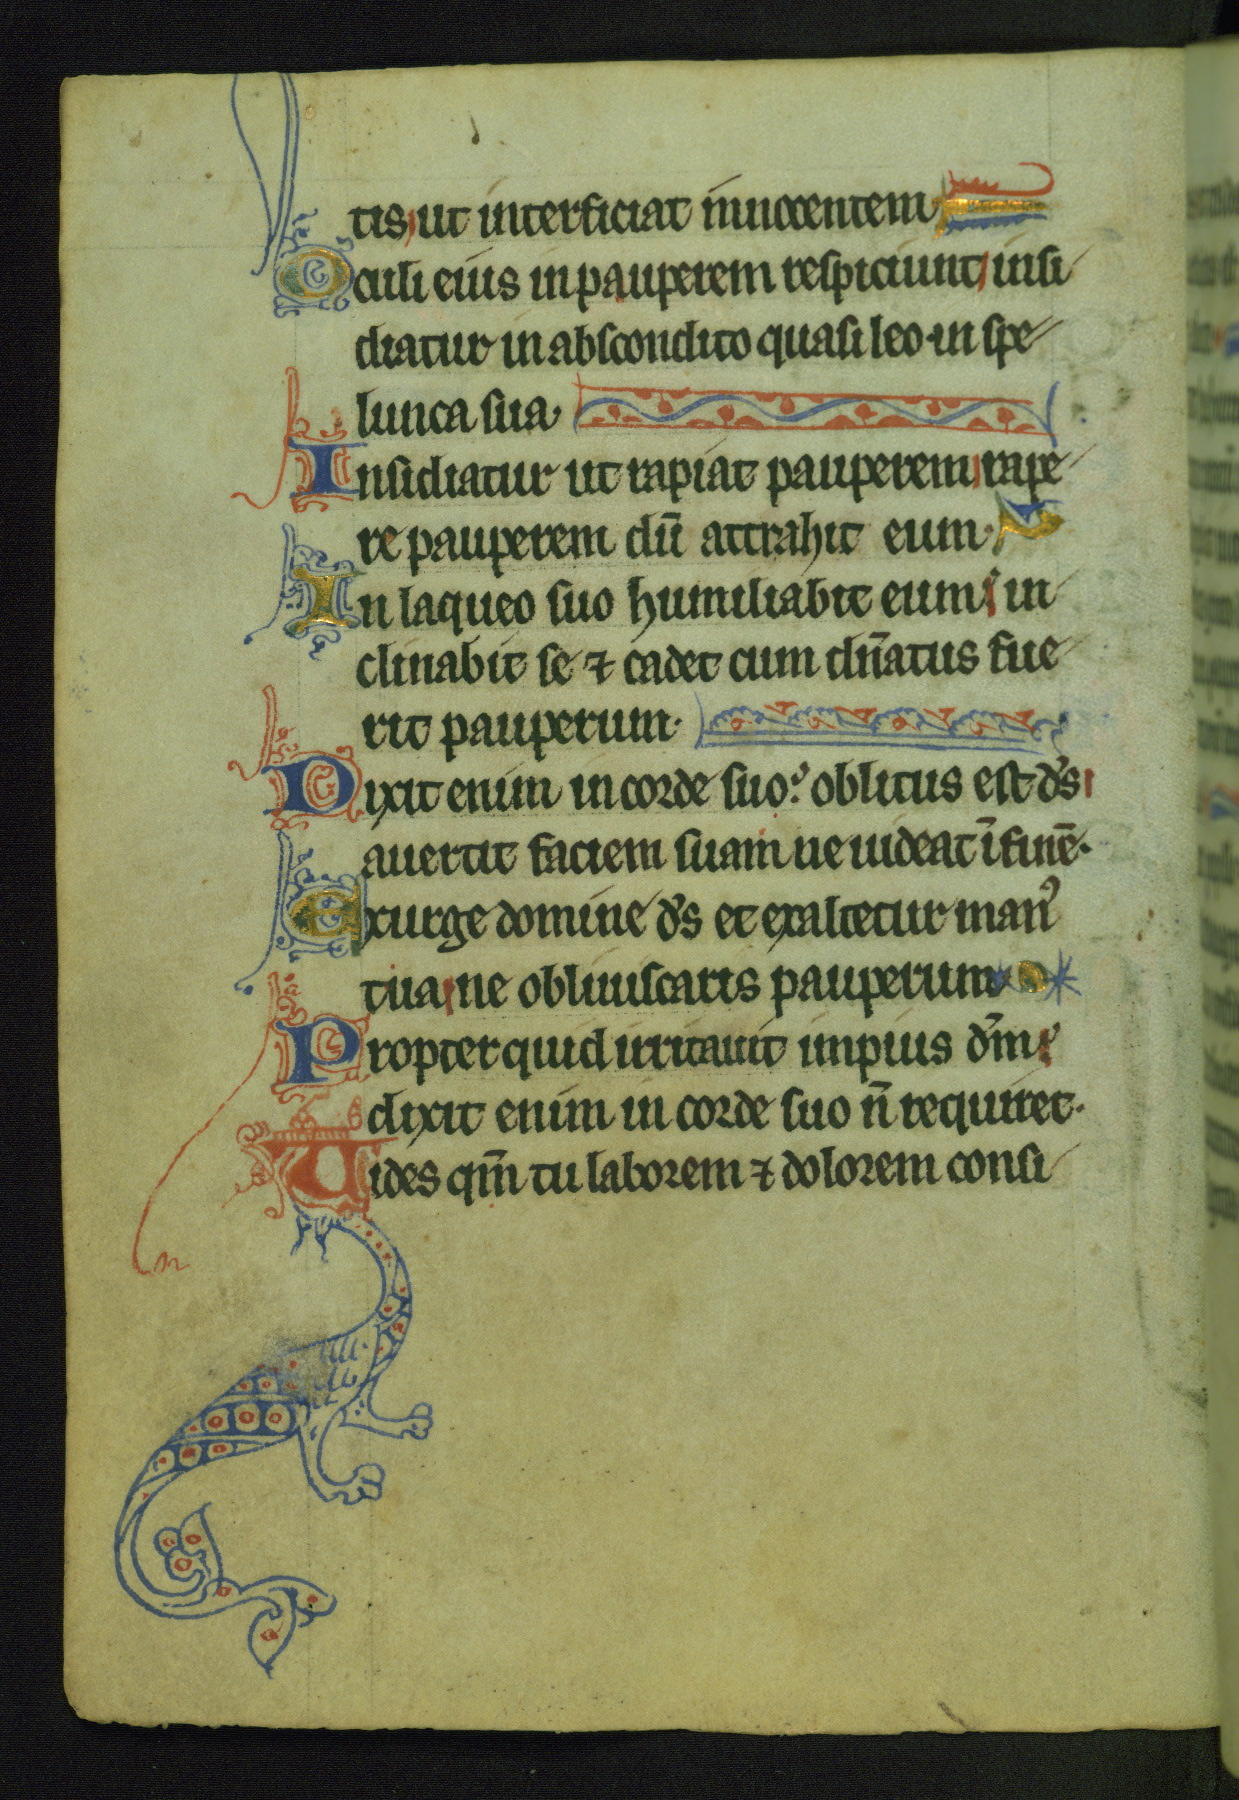 tis ut interficiat innocentem
Oculi eius in pauperem respiciunt insi
diatur in abscondito quasi leo in spe
lunca sua
Insidiatur ut rapiat pauperem rape
re pauperem dū attrahit eum
In laqueo suo humiliabit eum in
clinabit se ⁊ cadet cum dn̄atus fue
rit pauperum.
Dixit enim in corde suo oblitus est d̄s
auertit faciem suam ne uideat ī finē.
Exurge domine d̄s et exaltetur manꝰ
tua ne obliuiscaris pauperum
Propter quid irritauit impius d̄m
dixit enim in corde suo n̄ requiret.
Uides qm̄ tu laborem ⁊ dolorem consi